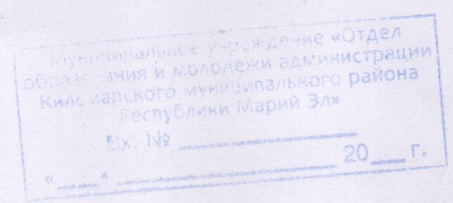 Муниципальное учреждение «Отдел
образования и молодежи администрации
Килемарского муниципального района
Республики Марий Эл»
Вх. № ____________
«____» ____________ 20___ г.